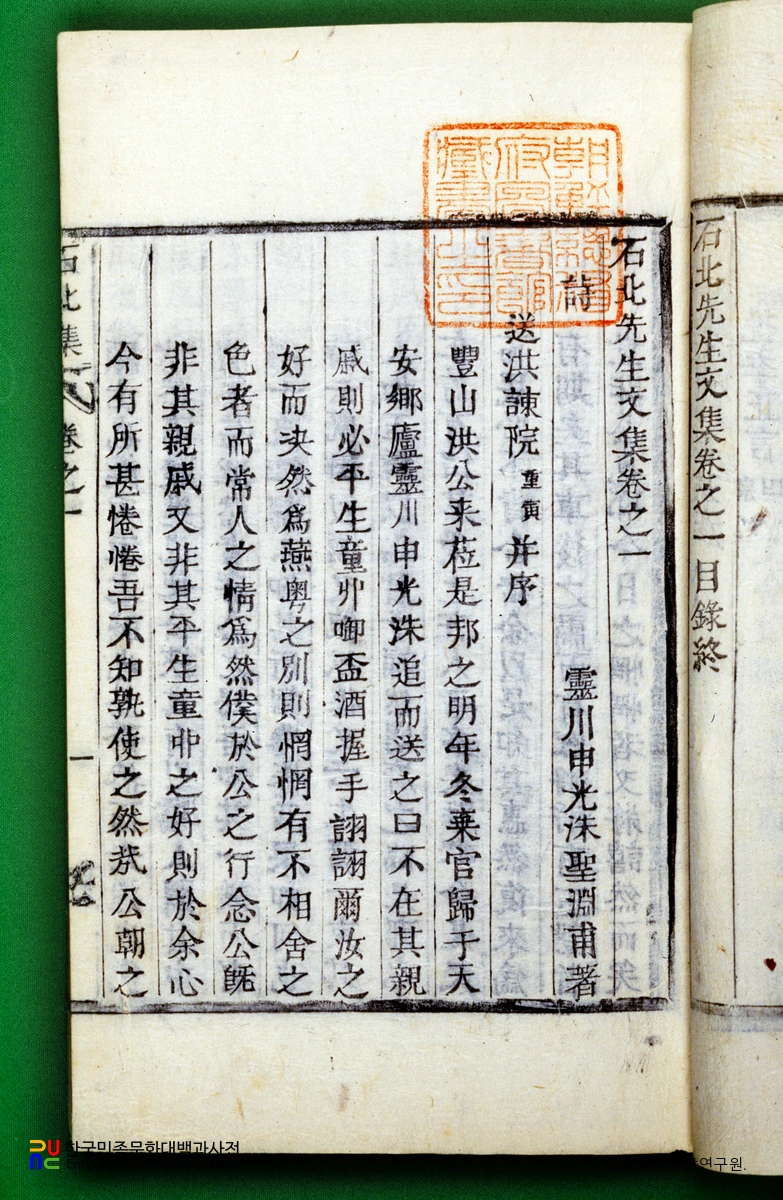 石北先生文集卷之一目錄終
石北先生文集卷之一
詩 靈川申光洙聖淵甫著
送洪諫院重寅并序
豐山洪公来莅是邦之明年冬棄官歸于天
安鄉廬靈川申光洙追而送之曰不在其親
戚則必平生童丱啣盃酒握手詡詡爾汝之
好而決然爲燕粤之別則惘惘有不相舍之
色者而常人之情爲然僕於公之行念公旣
非其親戚又非其平生童丱之好則於余心
今有所甚惓惓吾不知孰使之然㢤公朝之
石北集 卷之一 一
한국민족문화대백과사전
연구원.